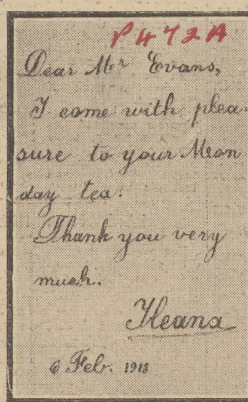 P472A
Dear Mr Evans,
I come with plea-
sure to your Mon
day tea.
Thank you very
much.
Ileana
6 Feb. 1918